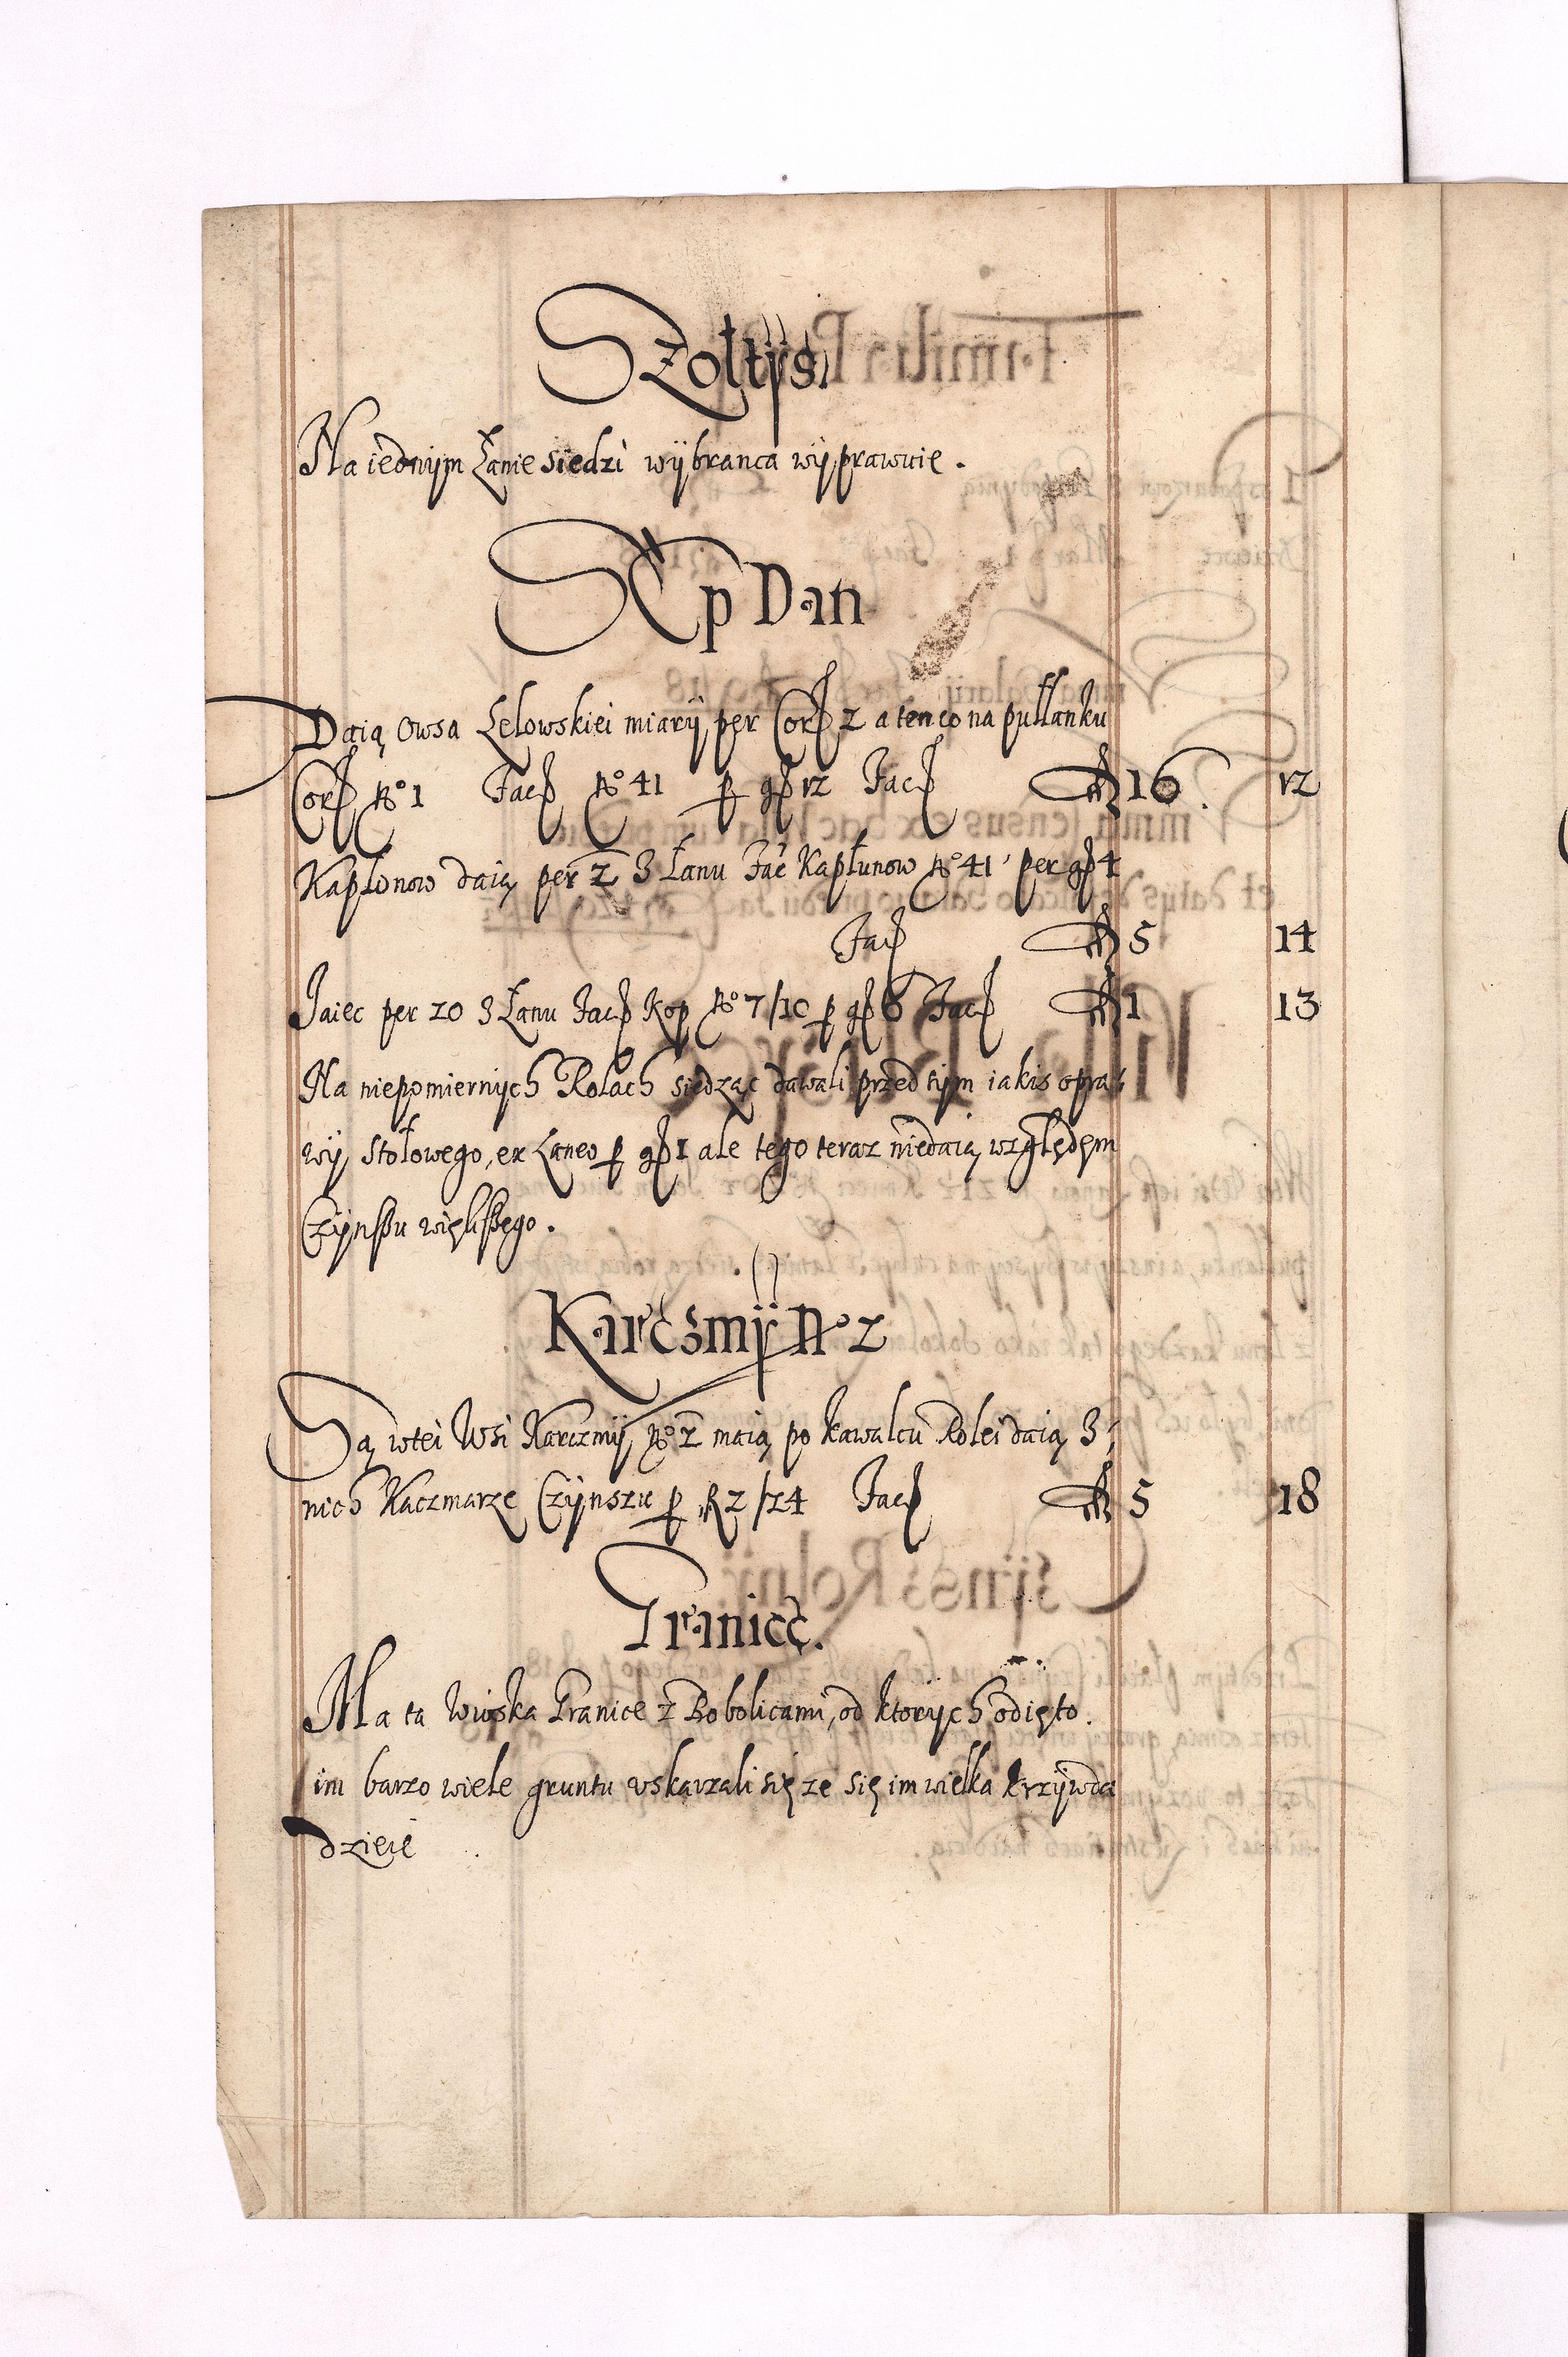 Szołtÿs
Na iednÿm Łanie siedzi wÿbranca wÿprawuie.
Sęp Dan
Daią Owsa Lelowskiei miarÿ per Cor 2 a ten co na pułłanku
Cor No 1 Fac No 41 p gr 12 Fac fl 16 12
Kapłonow daią per 2 3 Łanu Fac Kapłunow No 41 per gr 4
Fac fl 5 14
Jaiec per 20 3 Łanu Fac Kop No 7/10 p gr 6 Fac fl 1 13
Na niepomiernÿch Rolach siedząc dawali przed tÿm iakis opra
wÿ stołowego, ex Laneo p gr 1 ale tego teraz niedaią względem
Czÿnßu więkßego.
Karczmÿ No 2
Są wtei Wsi Karczmÿ No 2 maią po kawalcu Rolei daią 3
nich Kaczmarze Czÿnszu p 2/24 Fac fl 5 18
Granice.
Ma ta Wioska Granice z Bobolicami, od ktorÿch odięto
im barzo wiele gruntu uskarzali się ze się im wielka krzÿwda
dzieie